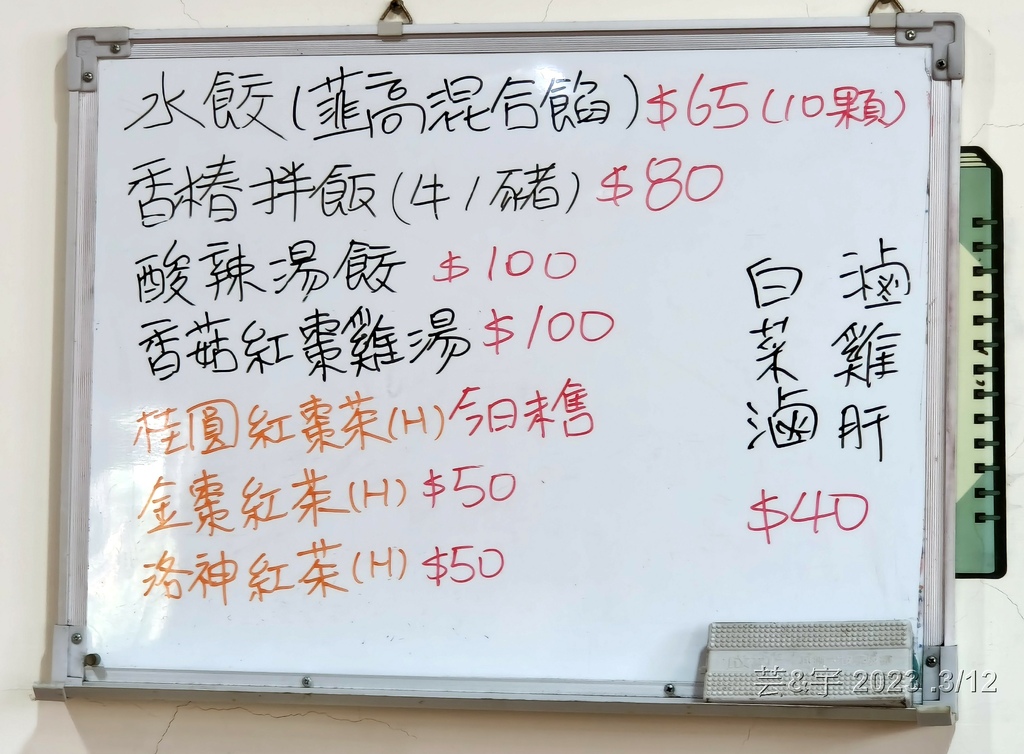 水餃(韮高混合餡)$65(10顆)
香椿拌飯(牛/豬) $80
酸辣湯餃 $100
香菇紅棗雞湯 $100
桂圓紅棗茶(H)今日未售
金棗紅茶(H) $50
洛神紅茶(H) $50
滷雞肝
白菜滷
$40
芸&宇 2023 .3/12